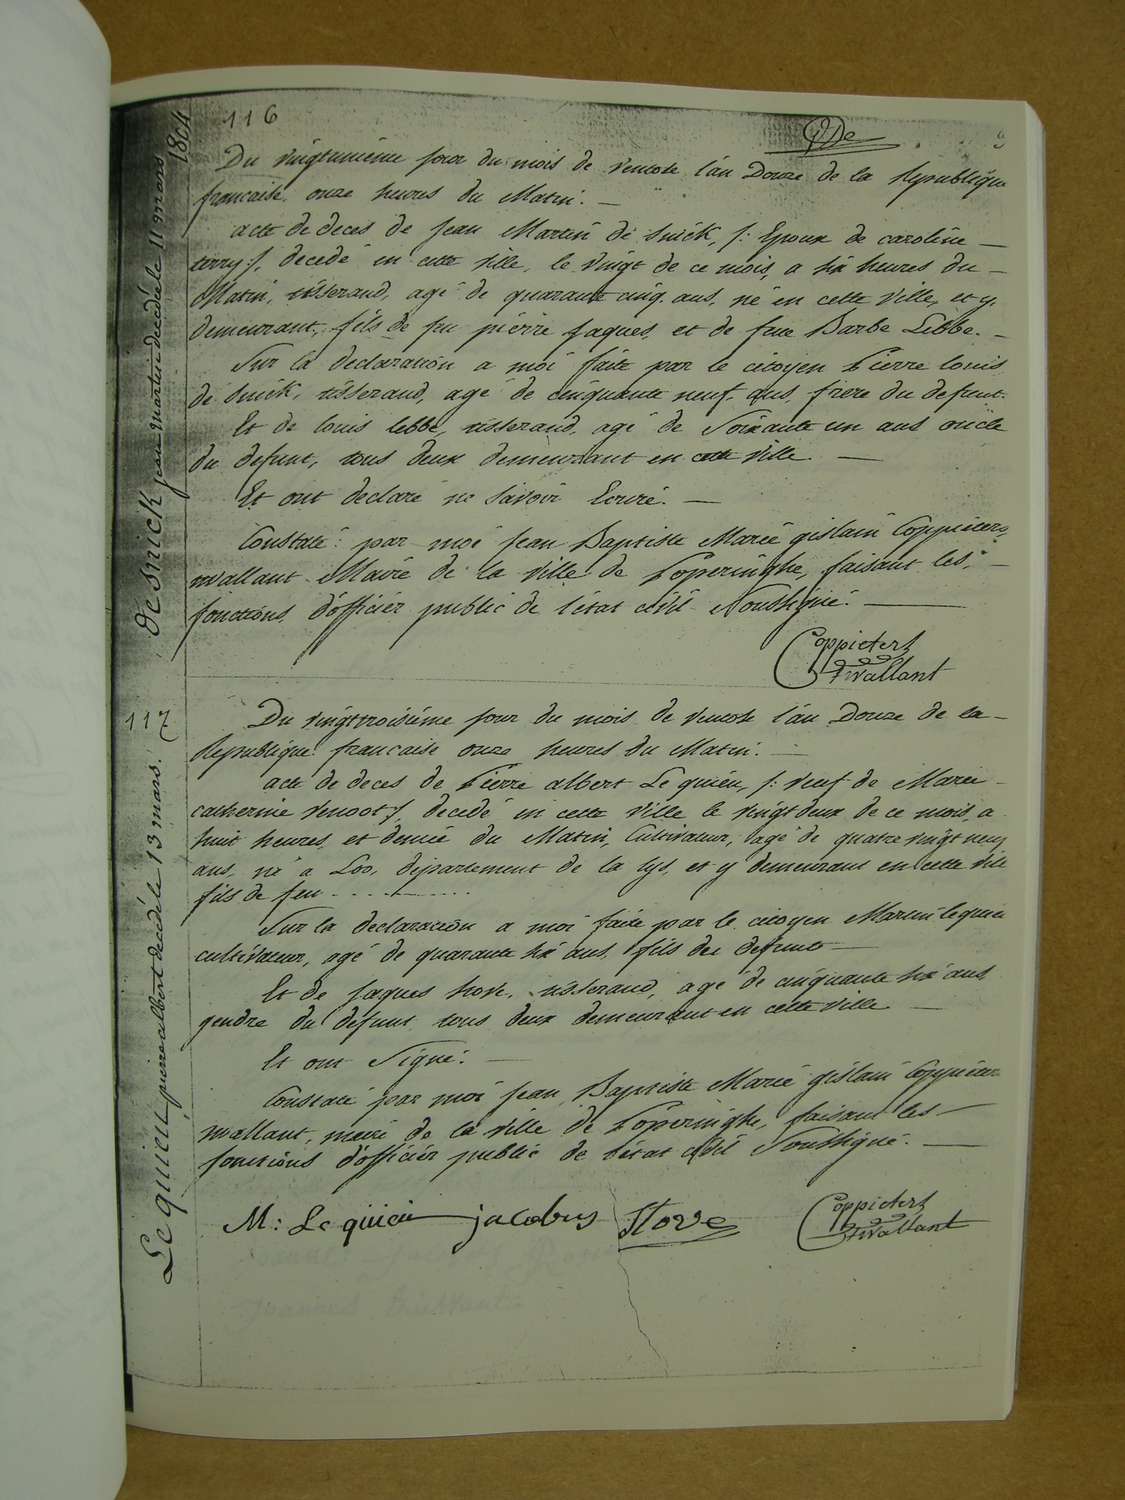 116
Du vingtunième jour du mois de ventose l'an Douze de la Republique
française. onze heures du Matin. —
acte de deces de jean Martin de Snick, /: Epoux de caroline —
terry :/, decedé en cette ville, le vingt de ce mois, a six heures du —
Matin, tisserand, agé de quarante cinq ans, né en cette ville, et y
demeurant, fils de feu pierre jaques, et de feue Barbe Lebbe. —
Sur la declaration a moi faite par le citoyen Pierre louis
de Snick, tisserand, agé de cinquante neuf ans, frere du defunt.
Et de louis lebbe, tisserand, agé de Soixante un ans oncle
du defunt, tous deux demeurant en cette ville. —
Et ont declaré ne savoir Ecrire. —
Constaté: par moi jean Baptiste Marie gislain Coppieters
wallant Maire de la ville de Poperinghe, faisant les, —
fonctions d'officier public de l'état civil Soussigné. —
Coppieters
wallant
de snick jean martin decedé le 11 mars 1804
117
Du vingttroisième jour du mois de ventose l'an Douze de la —
Republique française onze heures du Matin. —
acte de deces de Pierre albert Le quieu, /: veuf de Marie
catherine venoot :/, decedé en cette ville le vingtdeux de ce mois, a
huit heures et demie du Matin, Cultivateur, agé de quatre vingt neuf
ans, né a Loo, departement de la lys, et y demeurant en cette ville
fils de feu . . . . . . .
Sur la declaration a moi faite par le citoyen Martin le quieu
cultivateur, agé de quarante six ans, fils du defunt —
Et de jaques hove, tisserand, agé de cinquante six ans
gendre du defunt tous deux demeurant en cette ville —
Et ont Signé. —
Constaté par moi jean Baptiste Marie gislain Coppieters
wallant, maire de la ville de Poperinghe, faisant les —
fonctions d'officier public de l'état civil Soussigné. —
M: Le quieu jacobus Hove
Coppieters
wallant
Le quieu pierre albert decedé le 13 mars.